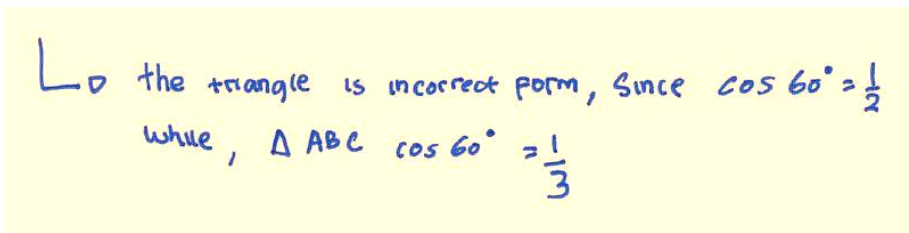 the triangle is incorrect form, Since cos 60° = 1/2
while, Δ ABC cos 60° = 1/3